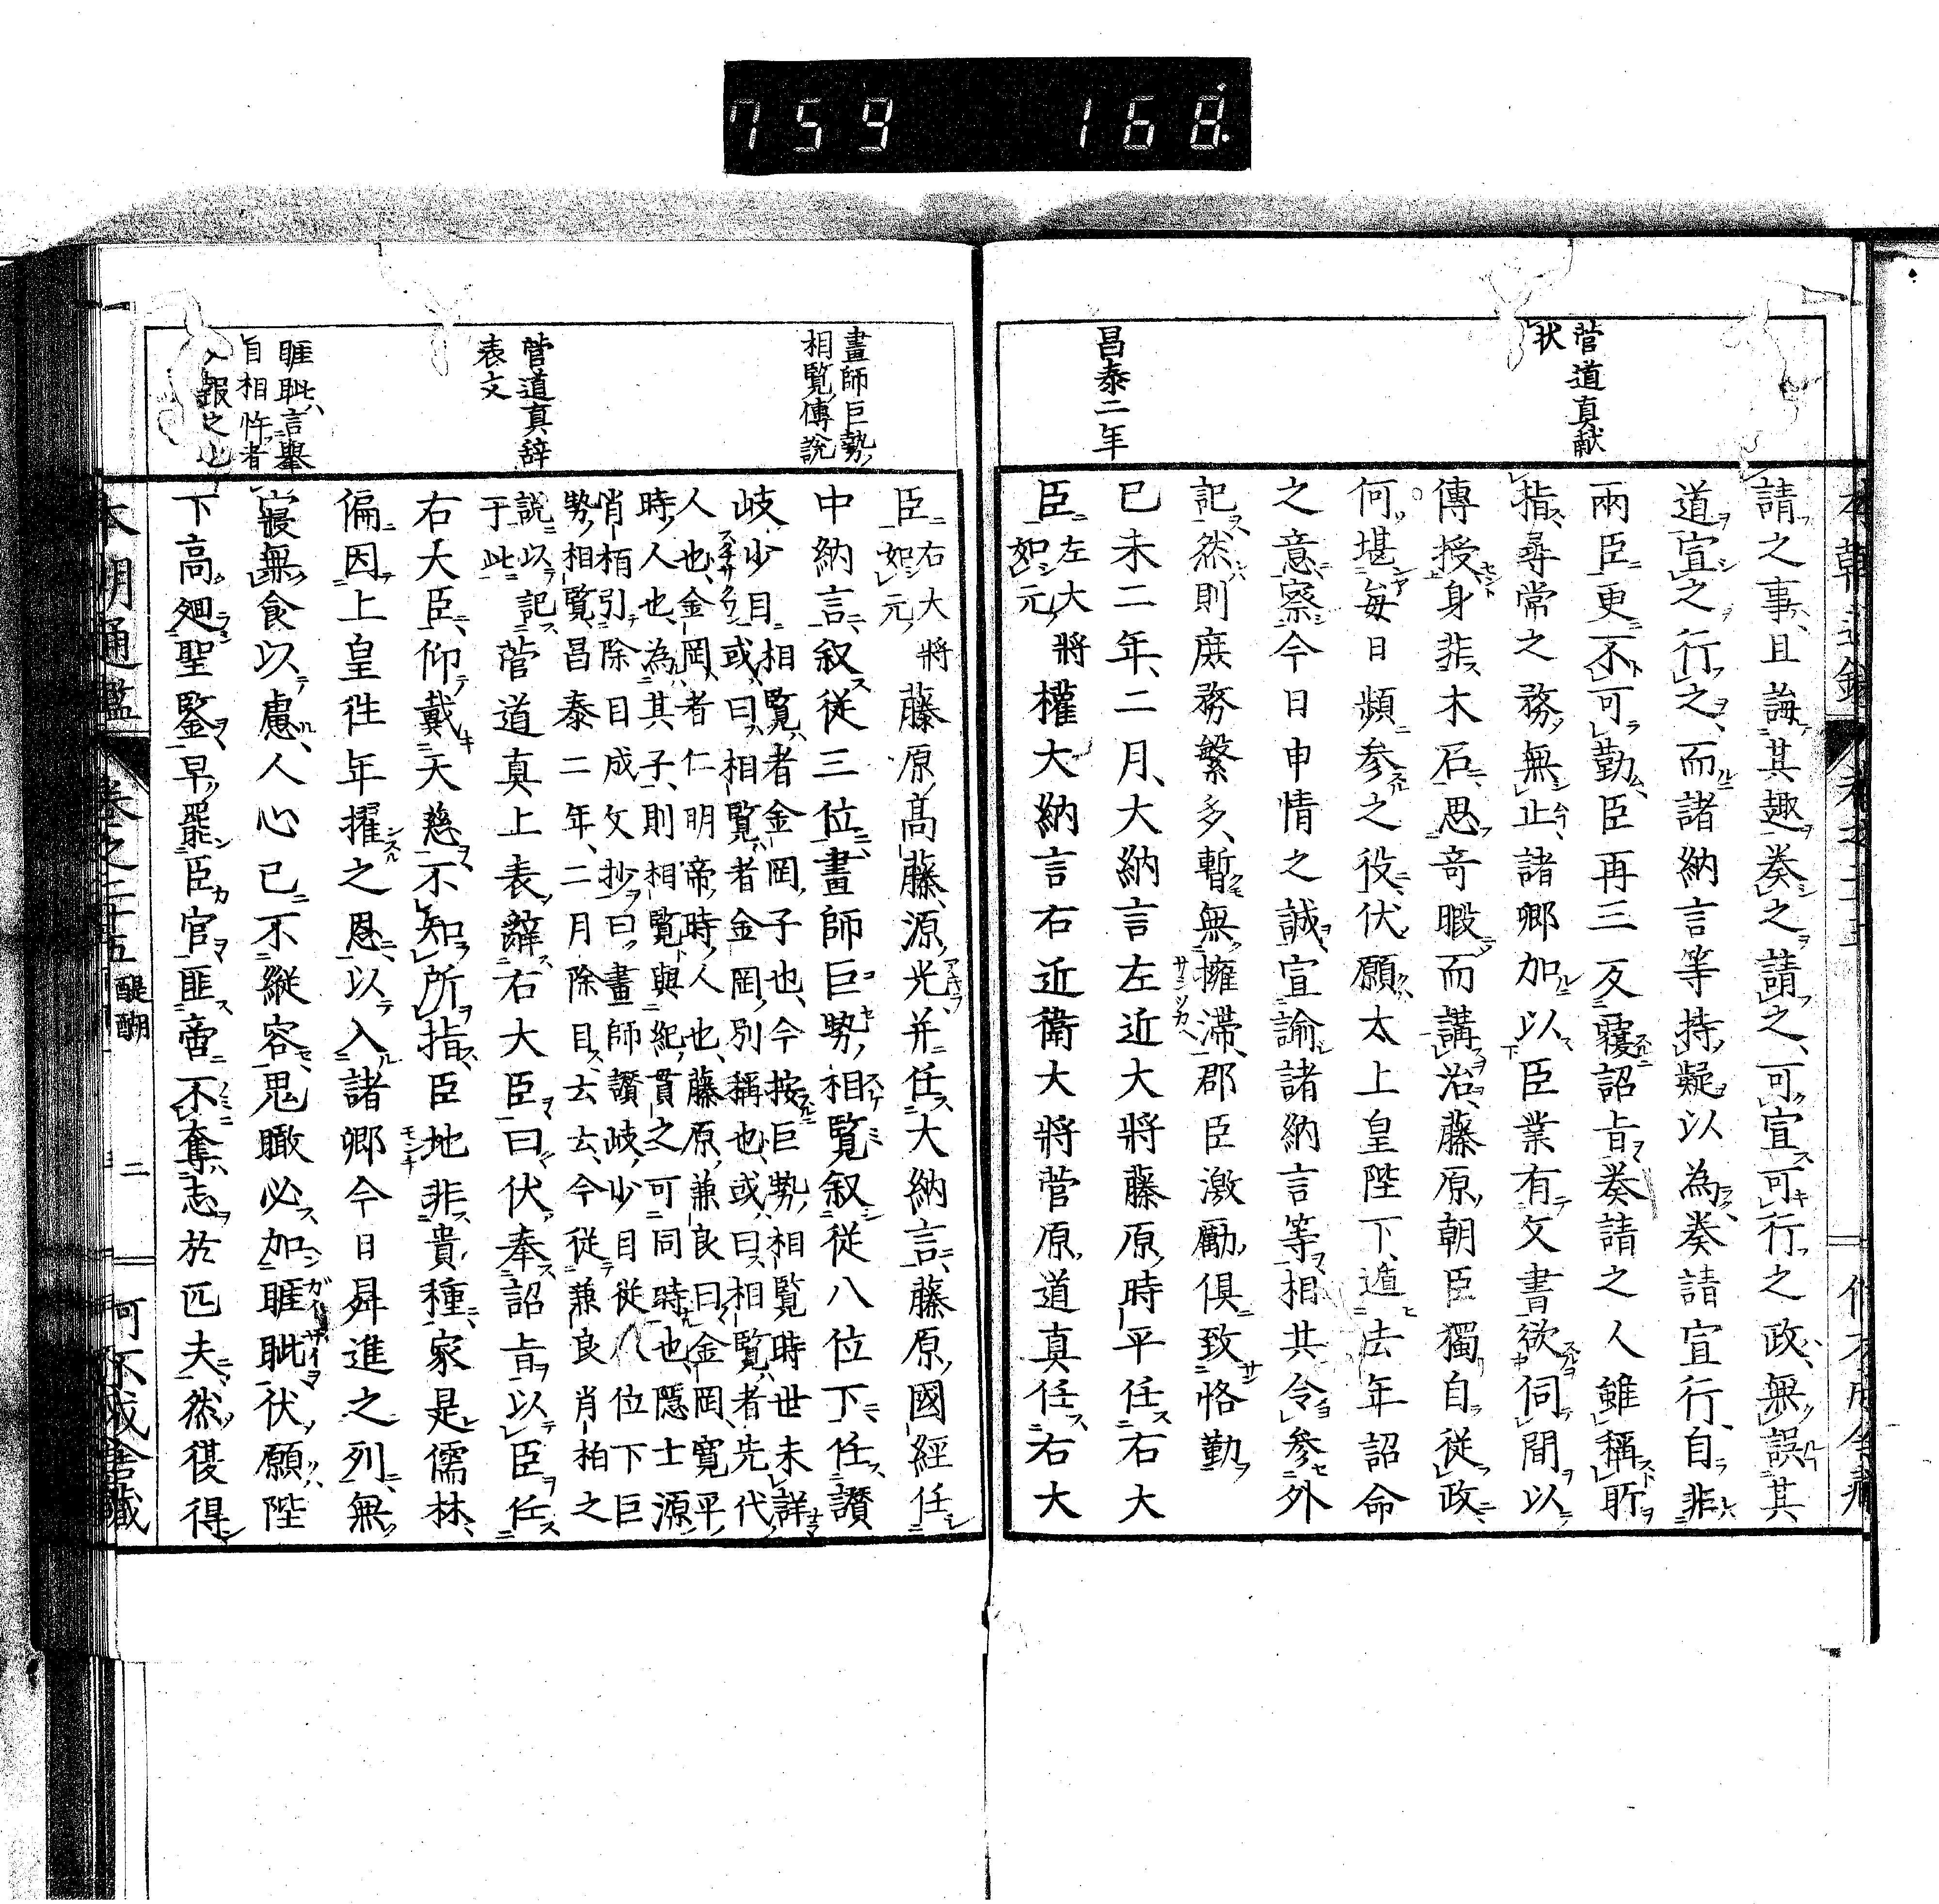 759 168
菅道真献
状
昌泰二年
請之事、且誨其趣奏之請之、可宣可行之政、無誤其
道宣之行之、而諸納言等持疑以為奏請宣行、自非
兩臣更不可勤、臣再三反覆詔旨奏請之人雖稱所
指尋常之務、無止諸卿加以臣業有文書欲伺間以
傳授身非木石思奇暇而講治藤原朝臣獨自從政
何堪每日頻參之役、伏願太上皇陛下、遁去年詔命
之意察今日申情之誠、宣諭諸納言等相共令參外
記然則庶務繁多、暫無擁滯、郡臣激勵俱致恪勤
已未二年、二月、大納言左近大將藤原時平任右大
臣左大將如元權大納言右近衛大將菅原道真任右大
畫師巨勢
相覽傳說
菅道真辞
表文
睚眦言舉
目相忤者
報之也
臣右大將如元藤原高藤、源光并任大納言、藤原國經任
中納言叙從三位畫師巨勢相覽叙從八位下任讃
岐少目相覽者金岡子也、今按巨勢相覽時世未詳
或曰相覽者金岡別稱也、或曰相覽者先代
人也、金岡者仁明帝時人也、藤原兼良曰金岡、寬平
時人也、為其子、則相覽與紀貫之可同時也隱士源
肖栢引除目成文抄曰畫師讃岐少目從八位下巨
勢相覽昌泰二年、二月除目、云云、今從兼良肖柏之
說以記
于此菅道真上表辭右大臣曰伏奉詔旨以臣任
右大臣、仰戴天慈不知所指臣地非貴種家是儒林
偏因上皇往年擢之恩以入諸卿今日昇進之列、無
寢無食以慮人心已不縱容鬼瞰必加睚眦伏願陛
下高廻聖鑒早罷臣官匪啻不奪志於匹夫、然復得
本朝通鑑 卷之二十五 醍醐 二